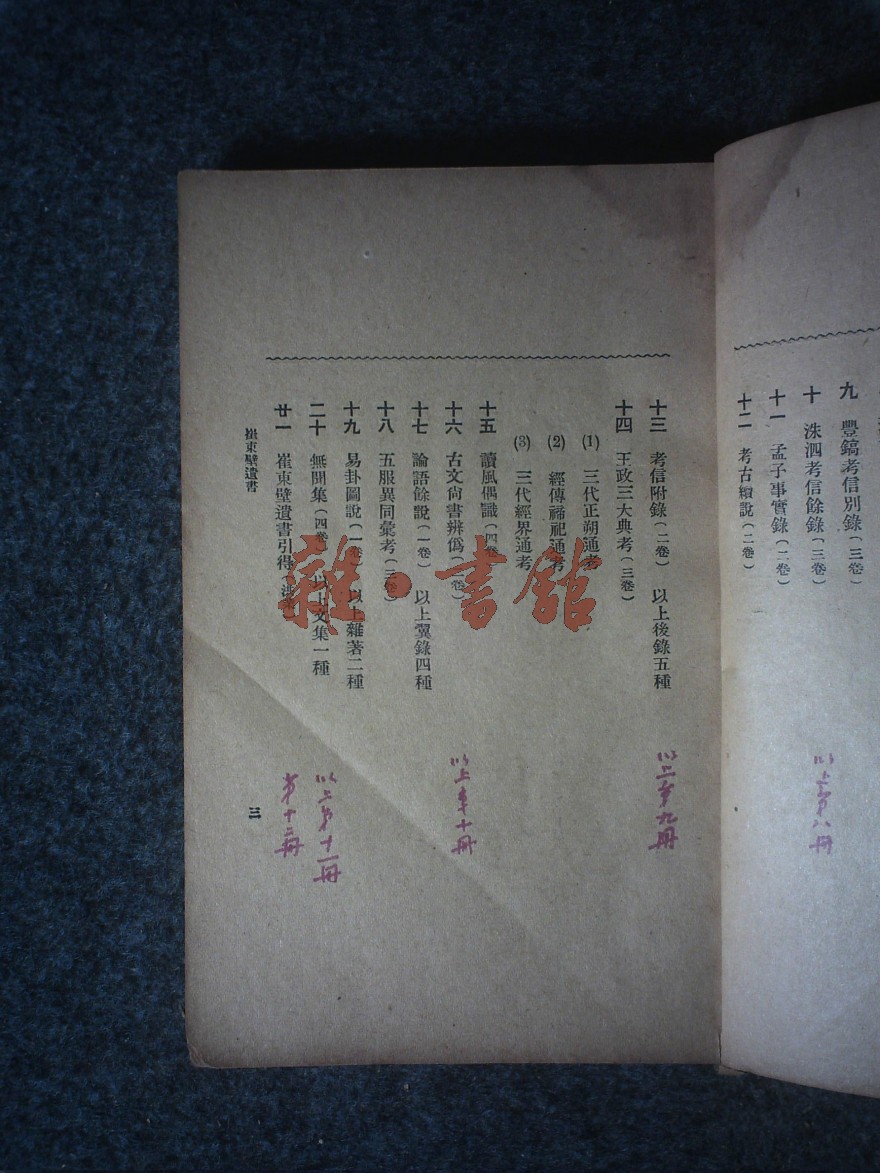 九　豐鎬考信別錄（三卷）
十　洙泗考信餘錄（三卷）
十一　孟子事實錄（二卷）
十二　考古續說（二卷）
以上第八冊
十三　考信附錄（二卷）　以上後錄五種
以上第九冊
十四　王政三大典考（三卷）
(1)　三代正朔通考
(2)　經傳禘祀通考
(3)　三代經界通考
十五　讀風偶識（四卷）
十六　古文尙書辨僞（卷）
以上第十冊
十七　論語餘說（一卷）　以上翼錄四種
十八　五服異同彙考（三卷）
十九　易卦圖說（一卷）　以上雜著二種
二十　無聞集（四卷）　以上文集一種
以上第十一冊
廿一　崔東壁遺書引得
第十二冊
崔東壁遺書
三
雜·書館